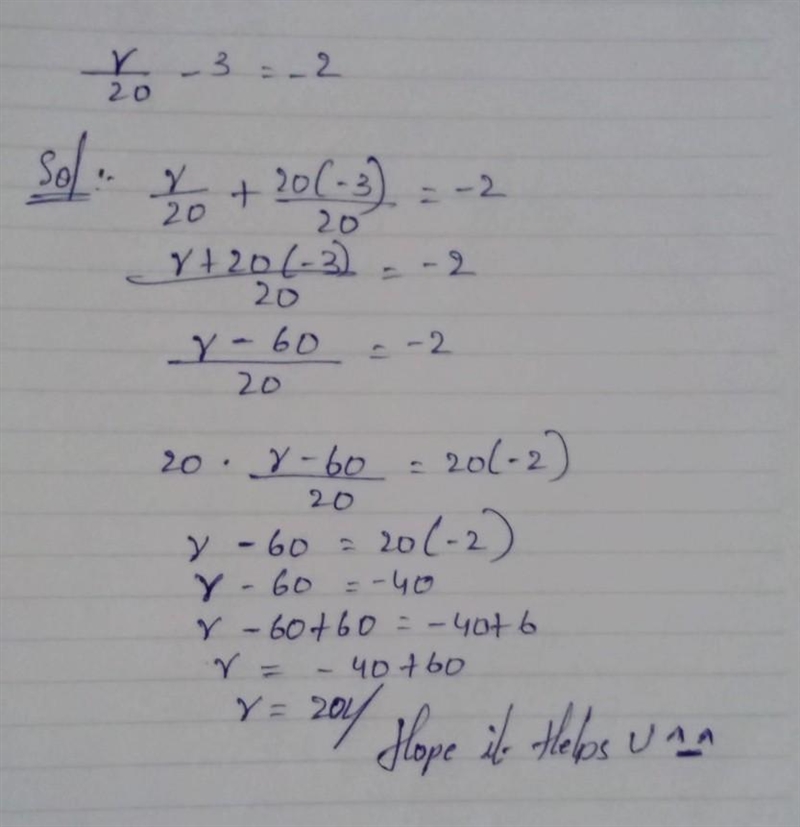 r/20 - 3 = -2
Sol :- r/20 + 20(-3)/20 = -2
r+20(-3)/20 = -2
r - 60/20 = -2
20 · r - 60/20 = 20(-2)
r - 60 = 20(-2)
r - 60 = -40
r - 60+60 = -40+6
r = -40+60
r = 20//
Hope it Helps U ^_^